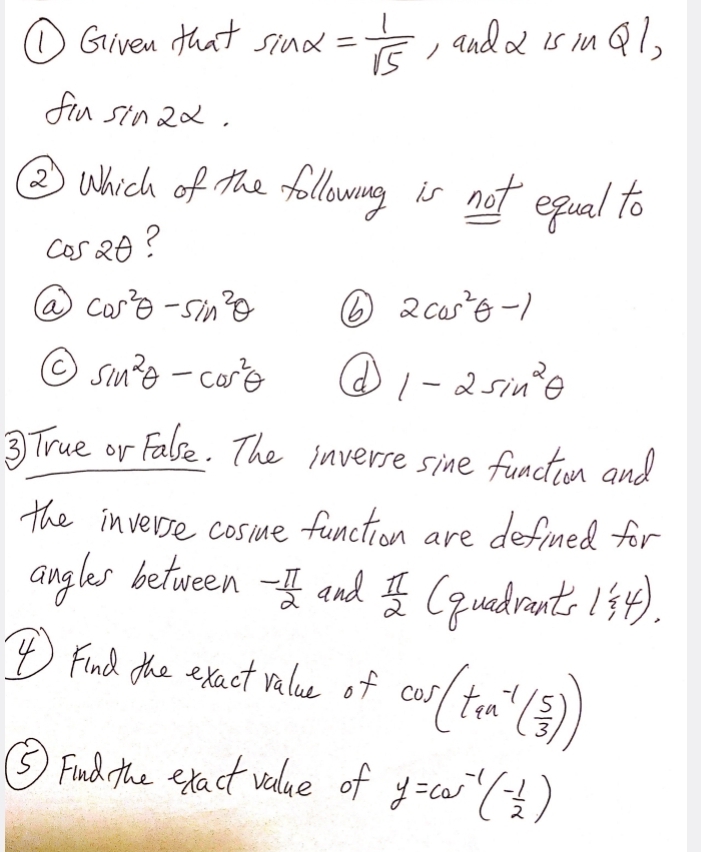 ① Given that sinα = 1/√5, and α is in Q1,
fin sin 2α.
② Which of the following is not equal to
cos 2θ?
ⓐ cos²θ - sin²θ ⓑ 2cos²θ - 1
ⓒ sin²θ - cos²θ ⓓ 1 - 2 sin²θ
③ True or False. The inverse sine function and
the inverse cosine function are defined for
angles between -π/2 and π/2 (quadrants 1 & 4).
④ Find the exact value of cos(tan⁻¹(5/3))
⑤ Find the exact value of y = cos⁻¹(-1/2)